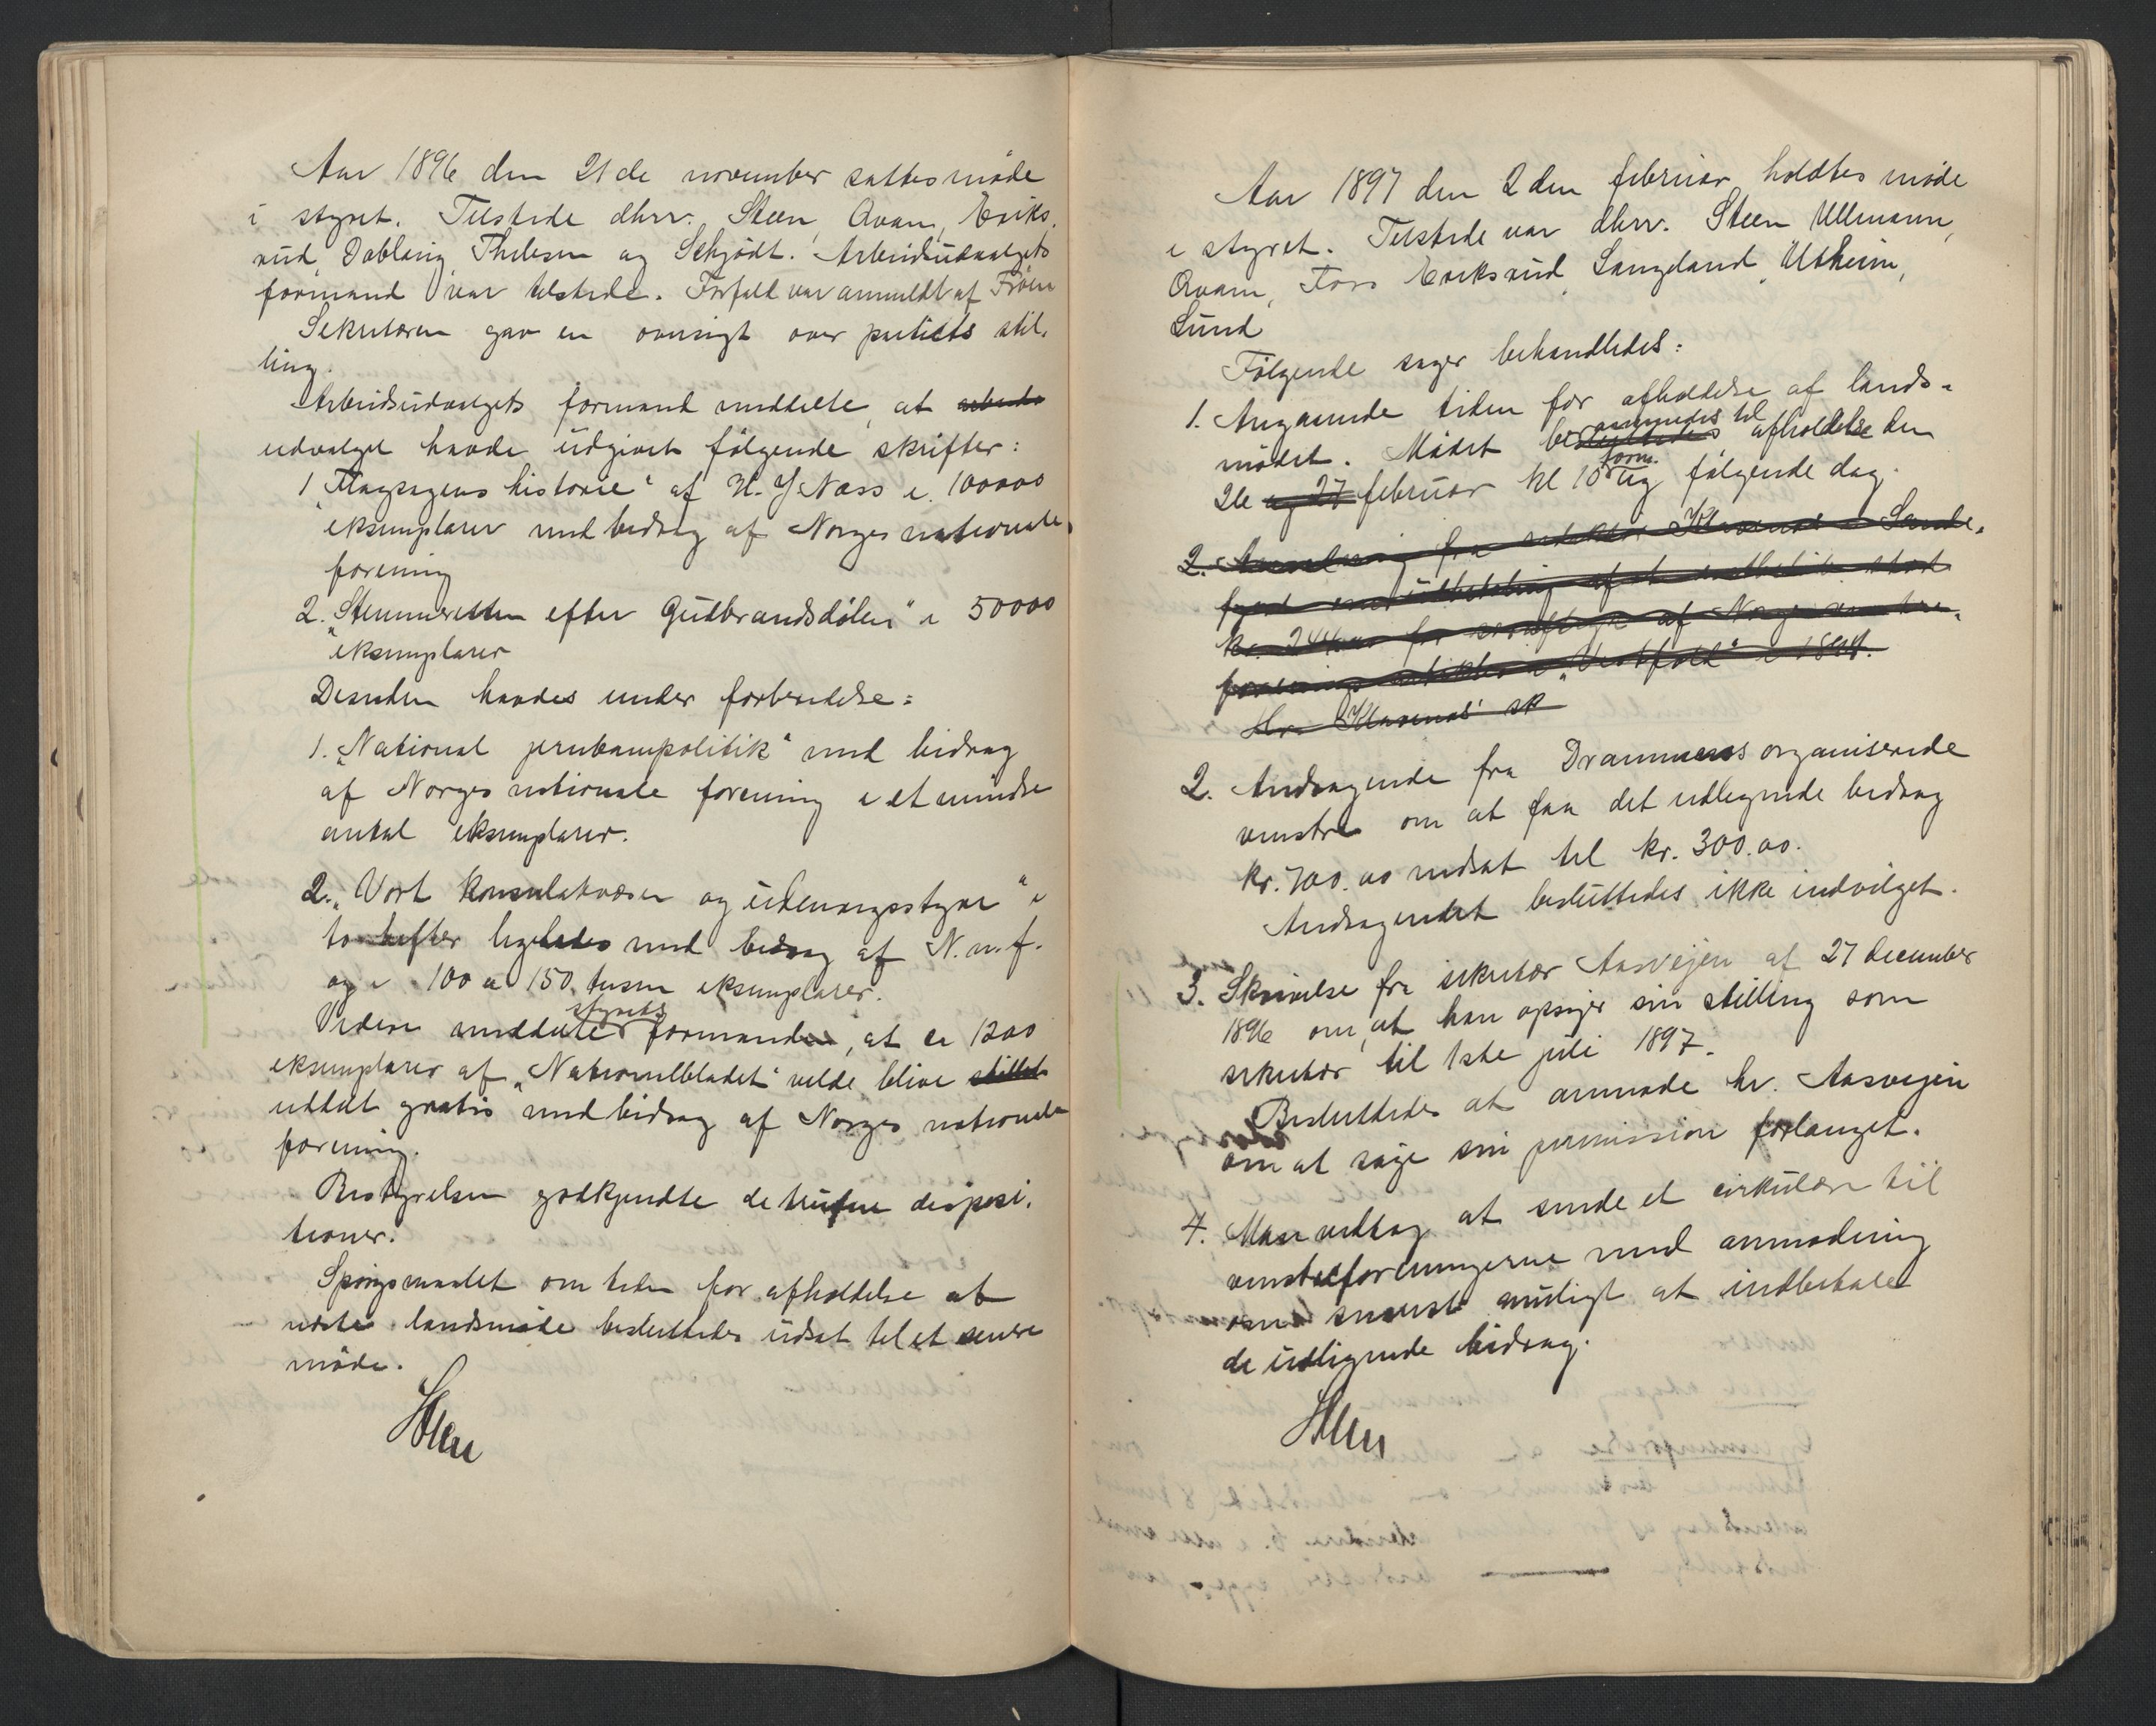 Aar 1896 den 21de november sattes møde
i styret. Tilstede dhrr. Steen, Qvam, Eriks-
rud, Dobloug, Thilesen og Schjødt. Arbeidsudvalgets
formand var tilstede. Forfald var anmeldt af Frøen
Sekretæren gav en oversigt over partiets stil-
ling.
Arbeidsudvalgets formand meddelte, at arbeids
udvalget havde udgivet følgende skrifter:
1 "Flagsagens historie" af H. J Næss i 100000
eksemplarer med bidrag af Norges nationale
forening
2. "Stemmeretten efter Gudbrandsdølen" i 50000
eksemplarer
Desuden havdes under forberedelse:
1. "National jernbanepolitik" med bidrag
af Norges nationale forening i et mindre
antal eksemplarer.
2. "Vort konsulatvæsen og udenrigsstyre" i
to hefter ligeledes med bidrag af N. n. f.
og i 100 a 150 tusen eksemplarer.
styrets
Videre meddelte formanden, at ca 1200
eksemplarer af "Nationalbladet" vilde blive stillet
uddelt gratis med bidrag af Norges nationale
forening.
Bestyrelsen godkjendte de trufne disposi-
tioner.
Spørgsmaalet om tiden for afholdelse af
næste landsmøde besluttedes udsat til et senere
møde.
Steen
Aar 1897 den 2den februar holdtes møde
i styret. Tilstede var dhrr. Steen Ullmann,
Qvam, Foss Eriksrud, Langeland, Utheim,
Lund
Følgende sager behandledes:
1. Angaaende tiden for afholdelse af lands-
rammedes til
mødet. Mødet besluttedes afholdelse den
form.
26 og 27 februar kl 10 og følgende dag.
2. fra redaktør Klavenæs i Sande-
fjord om af
kr. 244.00 for af Norges
forenings artikler i "Vestfold" i 1894.
Hr. Klavenæs' sk
2. Andragende fra Drammens organiserede
venstre om at faa det udlignede bidrag
kr. 700.00 nedsat til kr. 300.00.
Andragendet besluttedes ikke indvilget.
3. Skrivelse fra sekretær Aasvejen af 27 december
1896 om, at han opsiger sin stilling som
sekretær til 1ste juli 1897.
Besluttedes at anmode hr. Aasvejen
om at søge sin permission forlænget.
4. Man vedtog at sende et cirkulære til
venstreforeningerne med anmodning
om snarest muligt at indbetale
de udlignede bidrag.
Steen